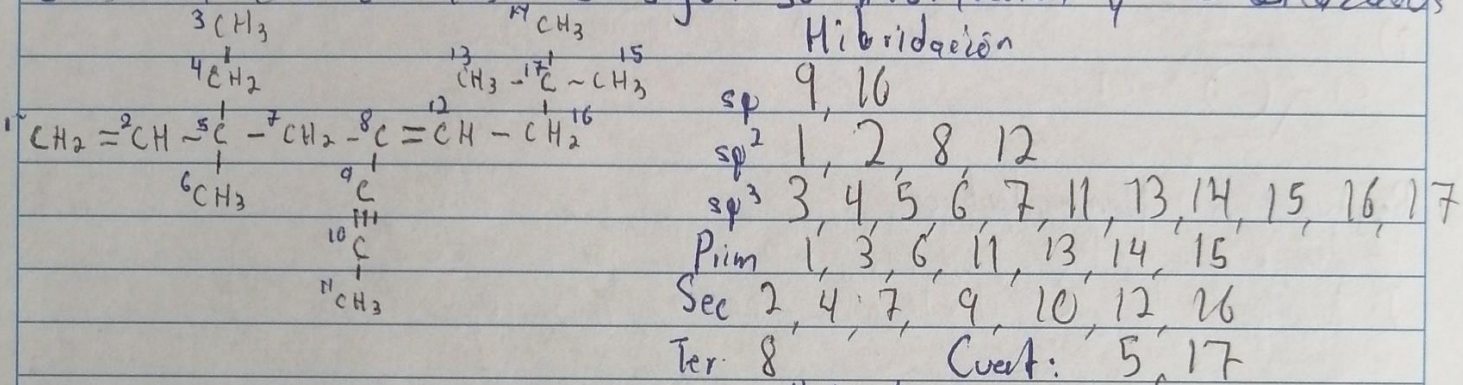 3 CH3
4 CH2
14 CH3
13 CH3 - 17 C - CH3 15
1 CH2 = 2 CH - 5 C - 7 CH2 - 8 C = 12 CH - CH2 16
6 CH3
9 C
≡
10 C
11 CH3
Hibridación
sp 9, 10
sp² 1, 2, 8, 12
sp³ 3, 4, 5, 6, 7, 11, 13, 14, 15, 16, 17
Prim 1, 3, 6, 11, 13, 14, 15
Sec 2, 4, 7, 9, 10, 12, 16
Ter. 8 Cuat: 5, 17